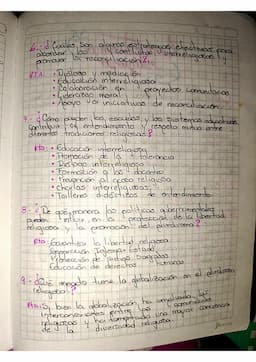 6. ¿Cuáles son algunas estrategias efectivas para
abordar los conflictos interreligiosos y
promover la reconciliación?
RTA: • Diálogo y mediación
• Educación interreligiosa
• Colaboración en proyectos comunitarios
• Liderazgo moral
• Apoyo a iniciativas de reconciliación.
7. ¿Cómo pueden las escuelas y los sistemas educativos
contribuir al entendimiento y respeto mutuo entre
diferentes tradiciones religiosas?
Rta: • Educación interreligiosa
• Promoción de la tolerancia
• Diálogo interreligioso
• Formación a los docentes
• Prevención al acoso religioso
• Charlas interreligiosas
• Talleres didácticos de entendimiento
8. ¿De qué manera las políticas gubernamentales
pueden influir en la protección de la libertad
religiosa y la promoción del pluralismo?
Rta: Garantizar la libertad religiosa
Separación Iglesia - Estado
Protección de Sitios Sagrados
Educación de derechos humanos
9. ¿Qué impacto tiene la globalización en el pluralismo
religioso?
Rta: Si bien la globalización ha ampliado las
interconexiones entre las comunidades
religiosas y ha una mayor conciencia
de la diversidad religiosa